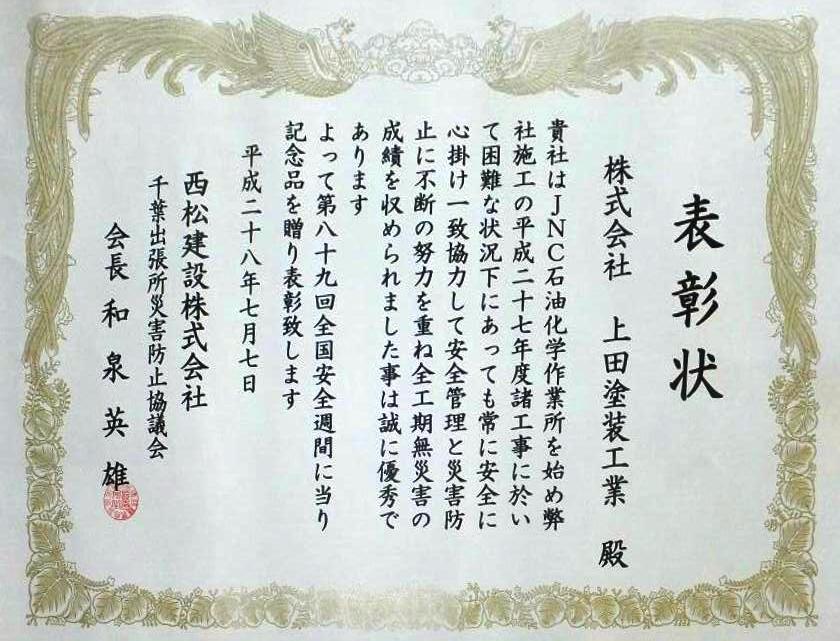 表彰状
株式会社 上田塗装工業 殿
貴社はJNC石油化学作業所を始め弊
社施工の平成二十七年度諸工事に於い
て困難な状況下にあっても常に安全に
心掛け一致協力して安全管理と災害防
止に不断の努力を重ね全工期無災害の
成績を収められました事は誠に優秀で
あります
よって第八十九回全国安全週間に当り
記念品を贈り表彰致します
平成二十八年七月七日
西松建設株式会社
千葉出張所災害防止協議会
会長 和泉英雄